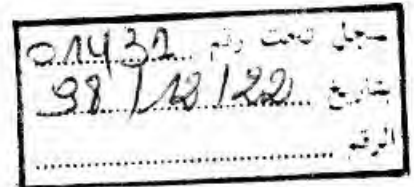 سجل تحت رقم 01432
بتاريخ 98/12/22
الرقم